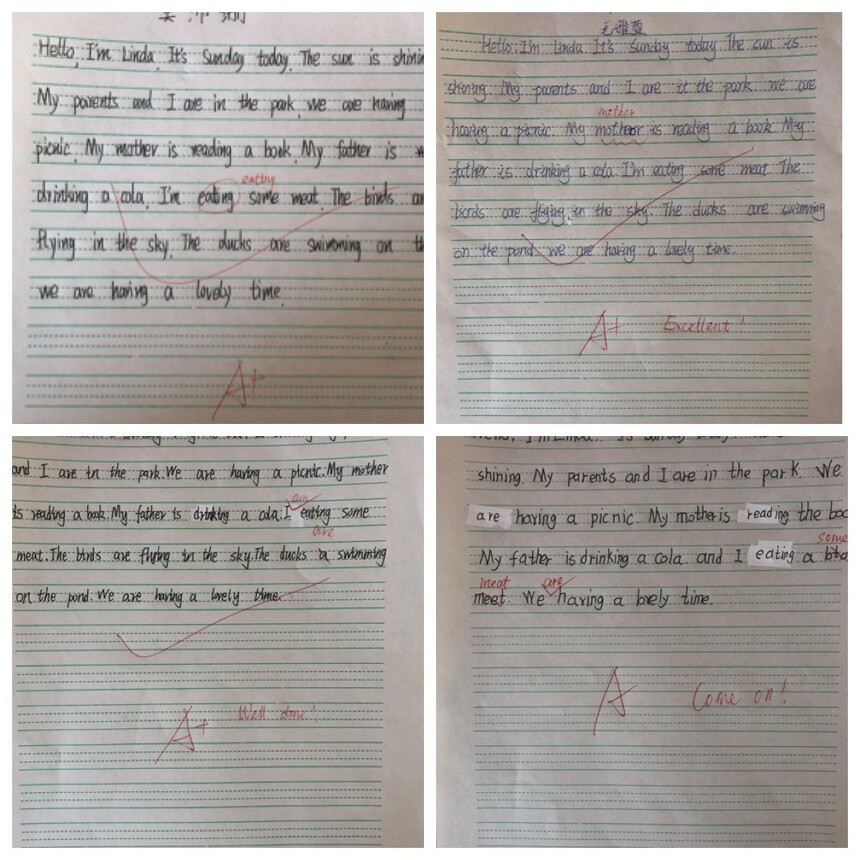 Hello, I'm Linda. It's Sunday today. The sun is
My parents and I are in the park. we are having
picnic. My mother is reading a book. My father is
eating
drinking a cola. I'm eating some meat. The birds
flying in the sky. The ducks are swimming on
we are having a lovely time.
A+
Hello. I'm Linda. It's Sunday today. The sun is
shining. My parents and I are it the park. we are
mother
having a picnic. My is reading a book My
father is drinking a cola. I'm eating some meat The
birds are flying in the sky. The ducks are swimming
on the pond. we are having a lovely time.
A+ Excellent!
and I are in the park. We are having a picnic. My mother
is reading a book. My father is drinking a cola. I eating some
am
are
meat. The birds are flying in the sky. The ducks a swimming
on the pond. We are having a lovely time.
A+ Well done!
shining. My parents and I are in the park. We
are having a picnic My mother is reading the
My father is drinking a cola and I eating a
some
meat are
meet. We having a lovely time.
A Come on!